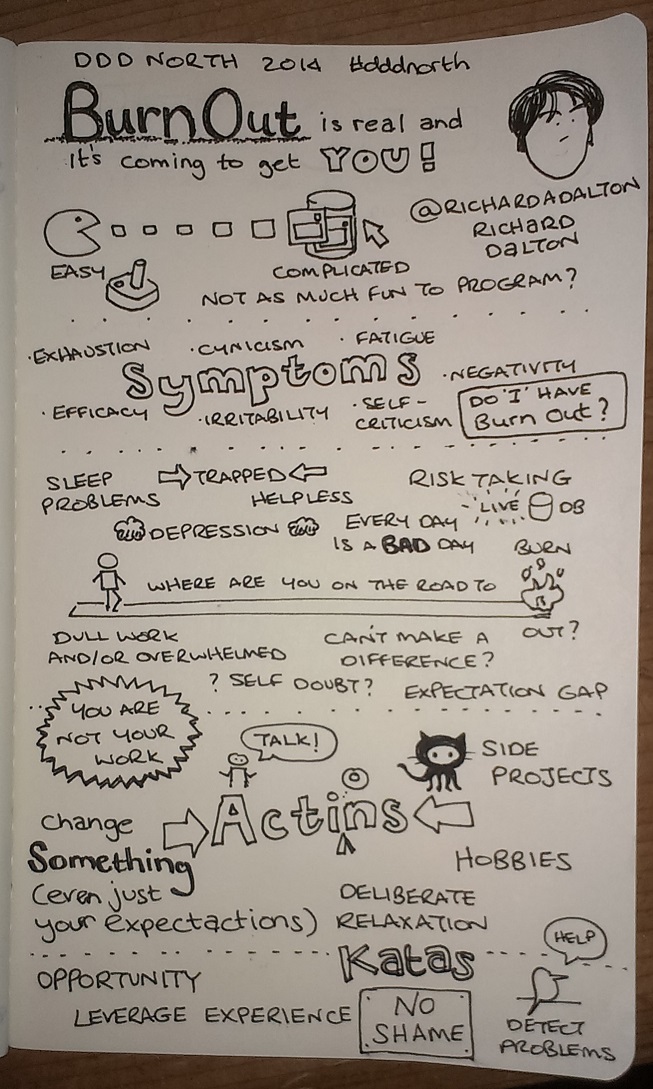 DDD NORTH 2014 #dddnorth
BurnOut is real and
it's coming to get YOU!
@RICHARDADALTON
RICHARD
DALTON
EASY
COMPLICATED
NOT AS MUCH FUN TO PROGRAM?
· EXHAUSTION · CYNICISM · FATIGUE
Symptoms · NEGATIVITY
· EFFICACY · IRRITABILITY · SELF-
CRITICISM
DO 'I' HAVE
Burn Out?
SLEEP
PROBLEMS
TRAPPED
HELPLESS
RISK TAKING
LIVE DB
DEPRESSION
EVERY DAY
IS A BAD DAY
WHERE ARE YOU ON THE ROAD TO
BURN
OUT?
DULL WORK
AND/OR OVERWHELMED
CAN'T MAKE A
DIFFERENCE?
? SELF DOUBT? EXPECTATION GAP
YOU ARE
NOT YOUR
WORK
TALK!
SIDE
PROJECTS
Actins
o
change
Something
(even just
your expectactions)
HOBBIES
DELIBERATE
RELAXATION
Katas
HELP
OPPORTUNITY
LEVERAGE EXPERIENCE
NO
SHAME
DETECT
PROBLEMS